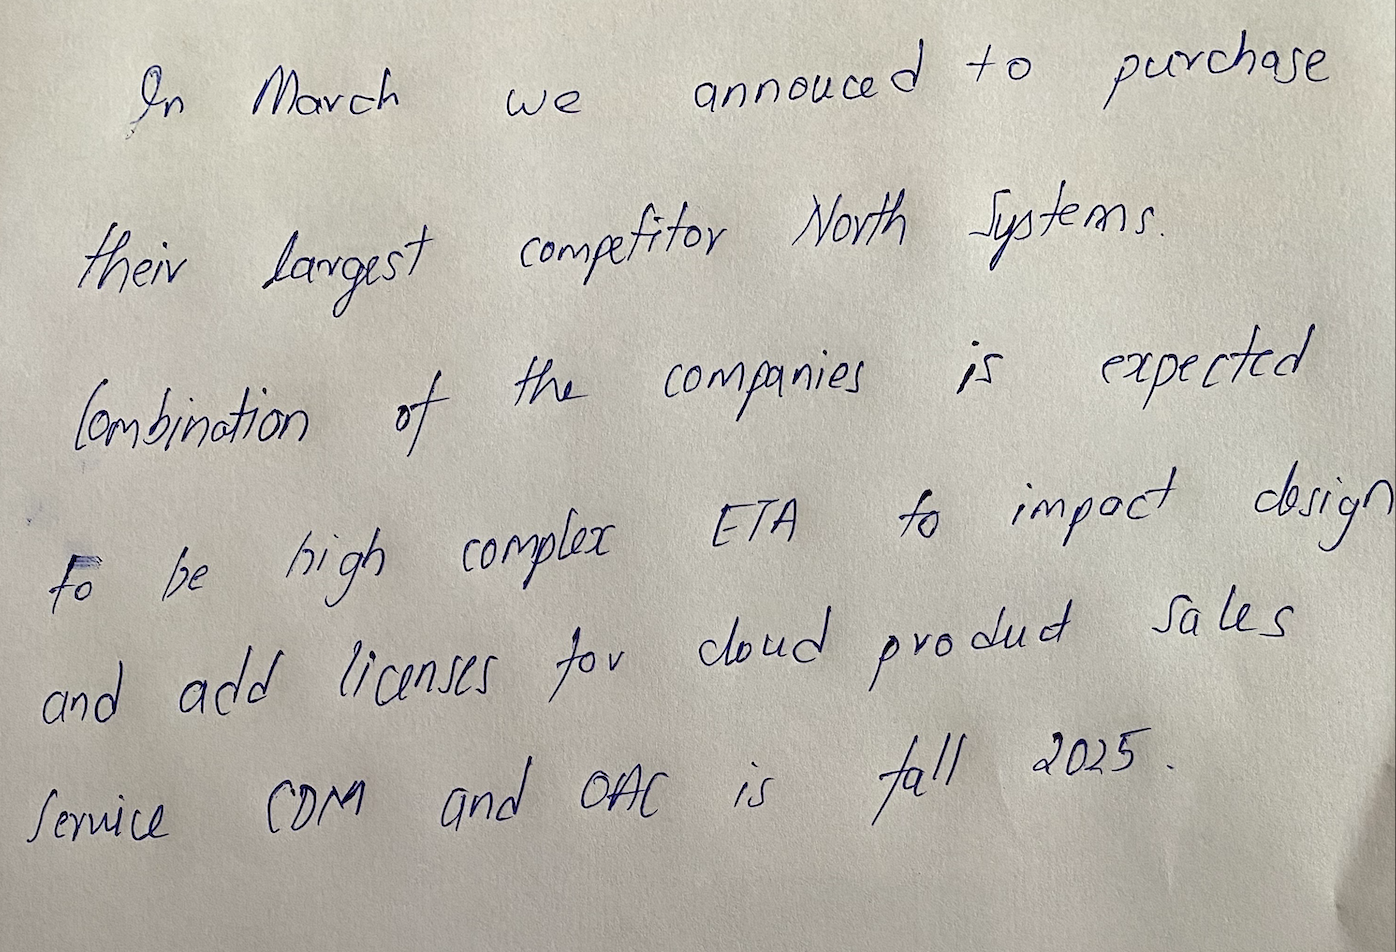 In March we annouced to purchase
their largest competitor North Systems.
Combination of the companies is expected
to be high complex ETA to impact design
and add licenses for cloud product sales
service CDM and OAC is fall 2025.